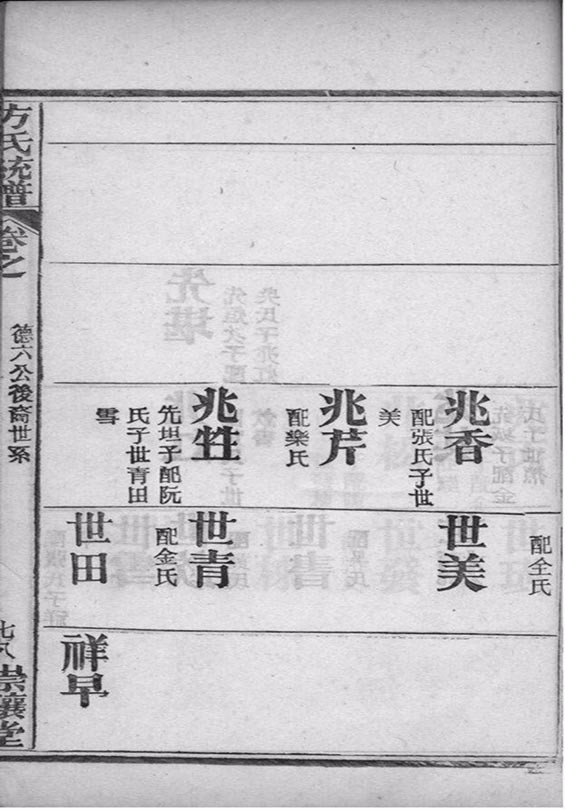 兆香
配張氏子世
美
兆芹
配樂氏
兆甡
先坦子配阮
氏子世青田
雪
配全氏
世美
世青
配金氏
世田
祥早
方氏統譜
卷之
德六公後裔世系
七八
崇讓堂